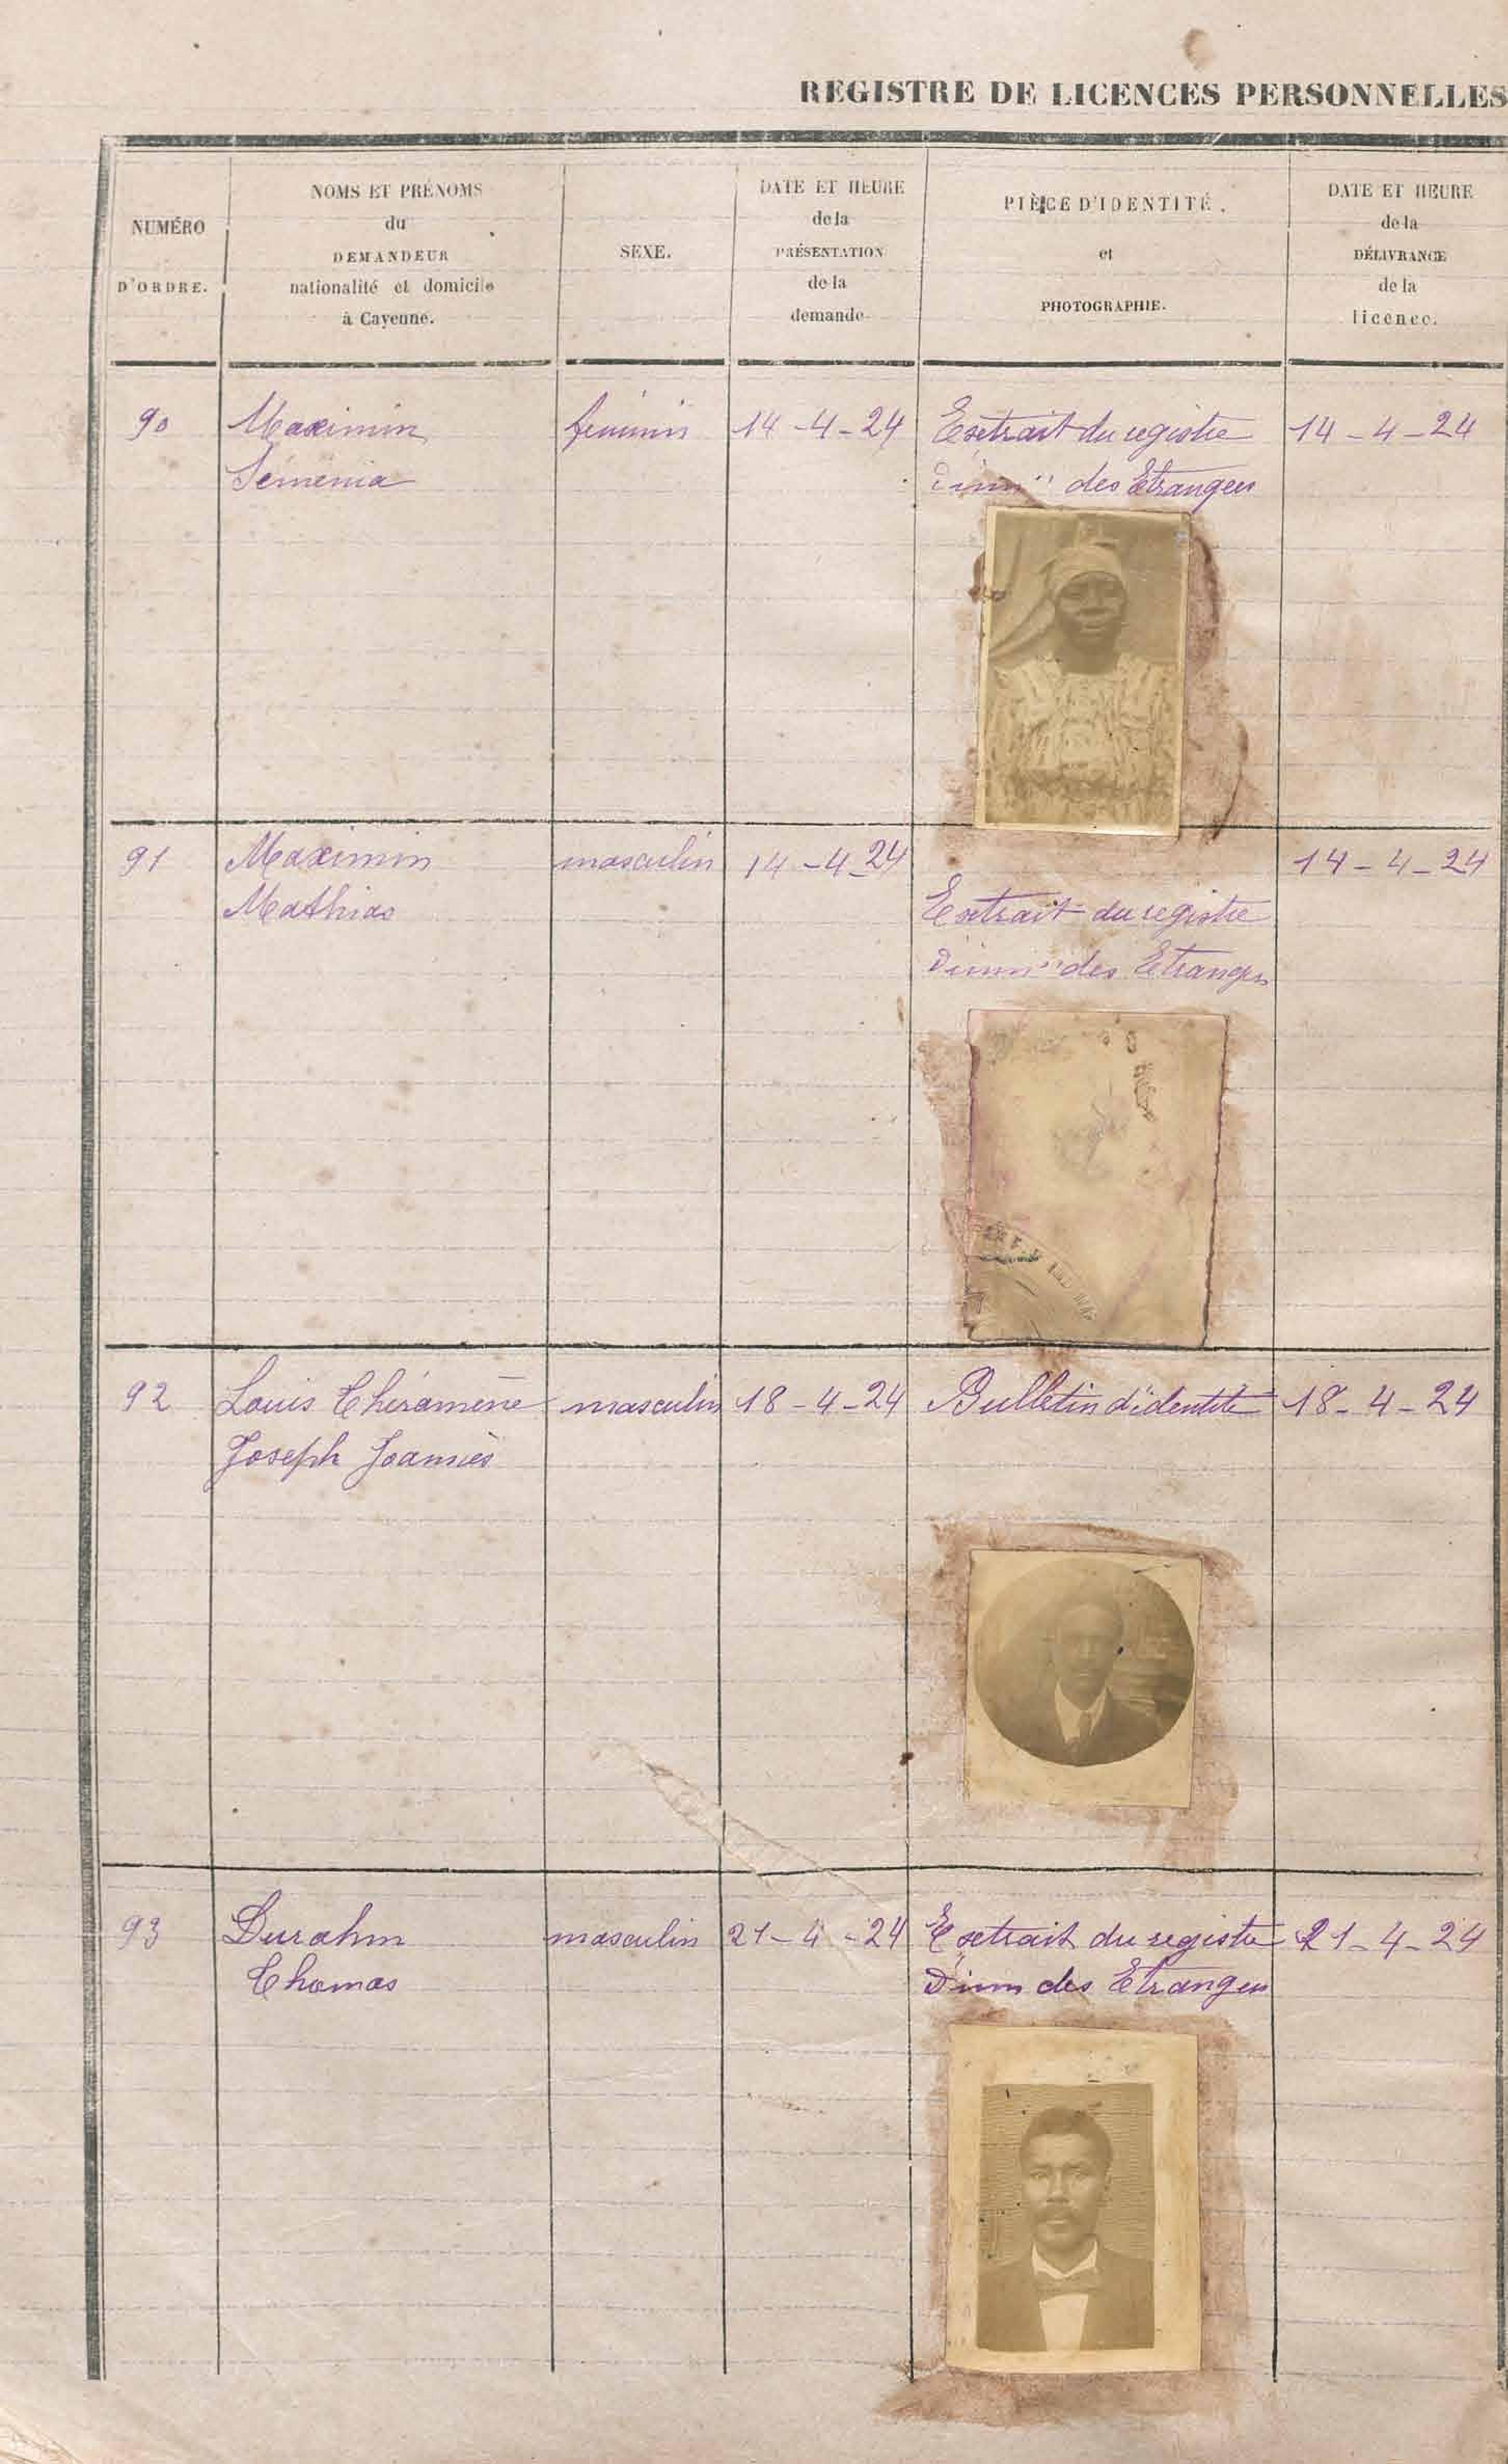 REGISTRE DE LICENCES PERSONNELLES
NUMÉRO
D'ORDRE.
NOMS ET PRÉNOMS
du
DEMANDEUR
nationalité et domicile
à Cayenne.
SEXE.
DATE ET HEURE
de la
PRÉSENTATION
de la
demande
PIÈCE D'IDENTITÉ.
et
PHOTOGRAPHIE.
DATE ET HEURE
de la
DÉLIVRANCE
de la
licence.
90 Maximin féminin 14-4-24 Extrait du registre 14-4-24
Séménia des Etrangers
91 Maximin masculin 14-4-24 14-4-24
Mathias Extrait du registre
des Etrangers
92 Louis Théramène masculin 18-4-24 Bulletin d'identité 18-4-24
Joseph Joannès
93 Durahm masculin 21-4-24 Extrait du registre 21-4-24
Thomas D'imm des Etrangers